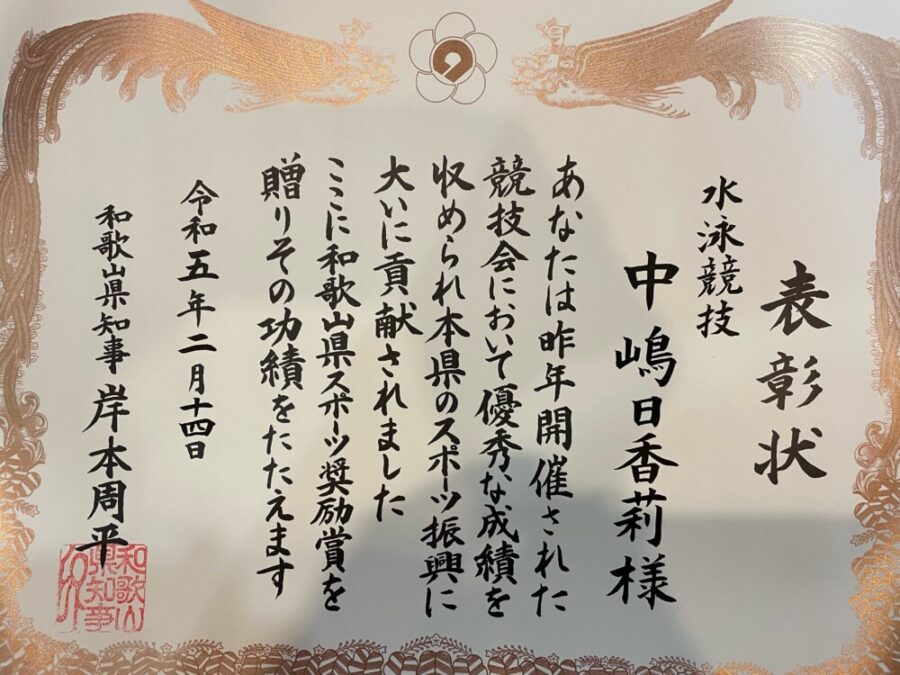 表彰状
水泳競技
中嶋日香莉様
あなたは昨年開催された
競技会において優秀な成績を
収められ本県のスポーツ振興に
大いに貢献されました
ここに和歌山県スポーツ奨励賞を
贈りその功績をたたえます
令和五年二月十四日
和歌山県知事 岸本周平
和歌山
県知事